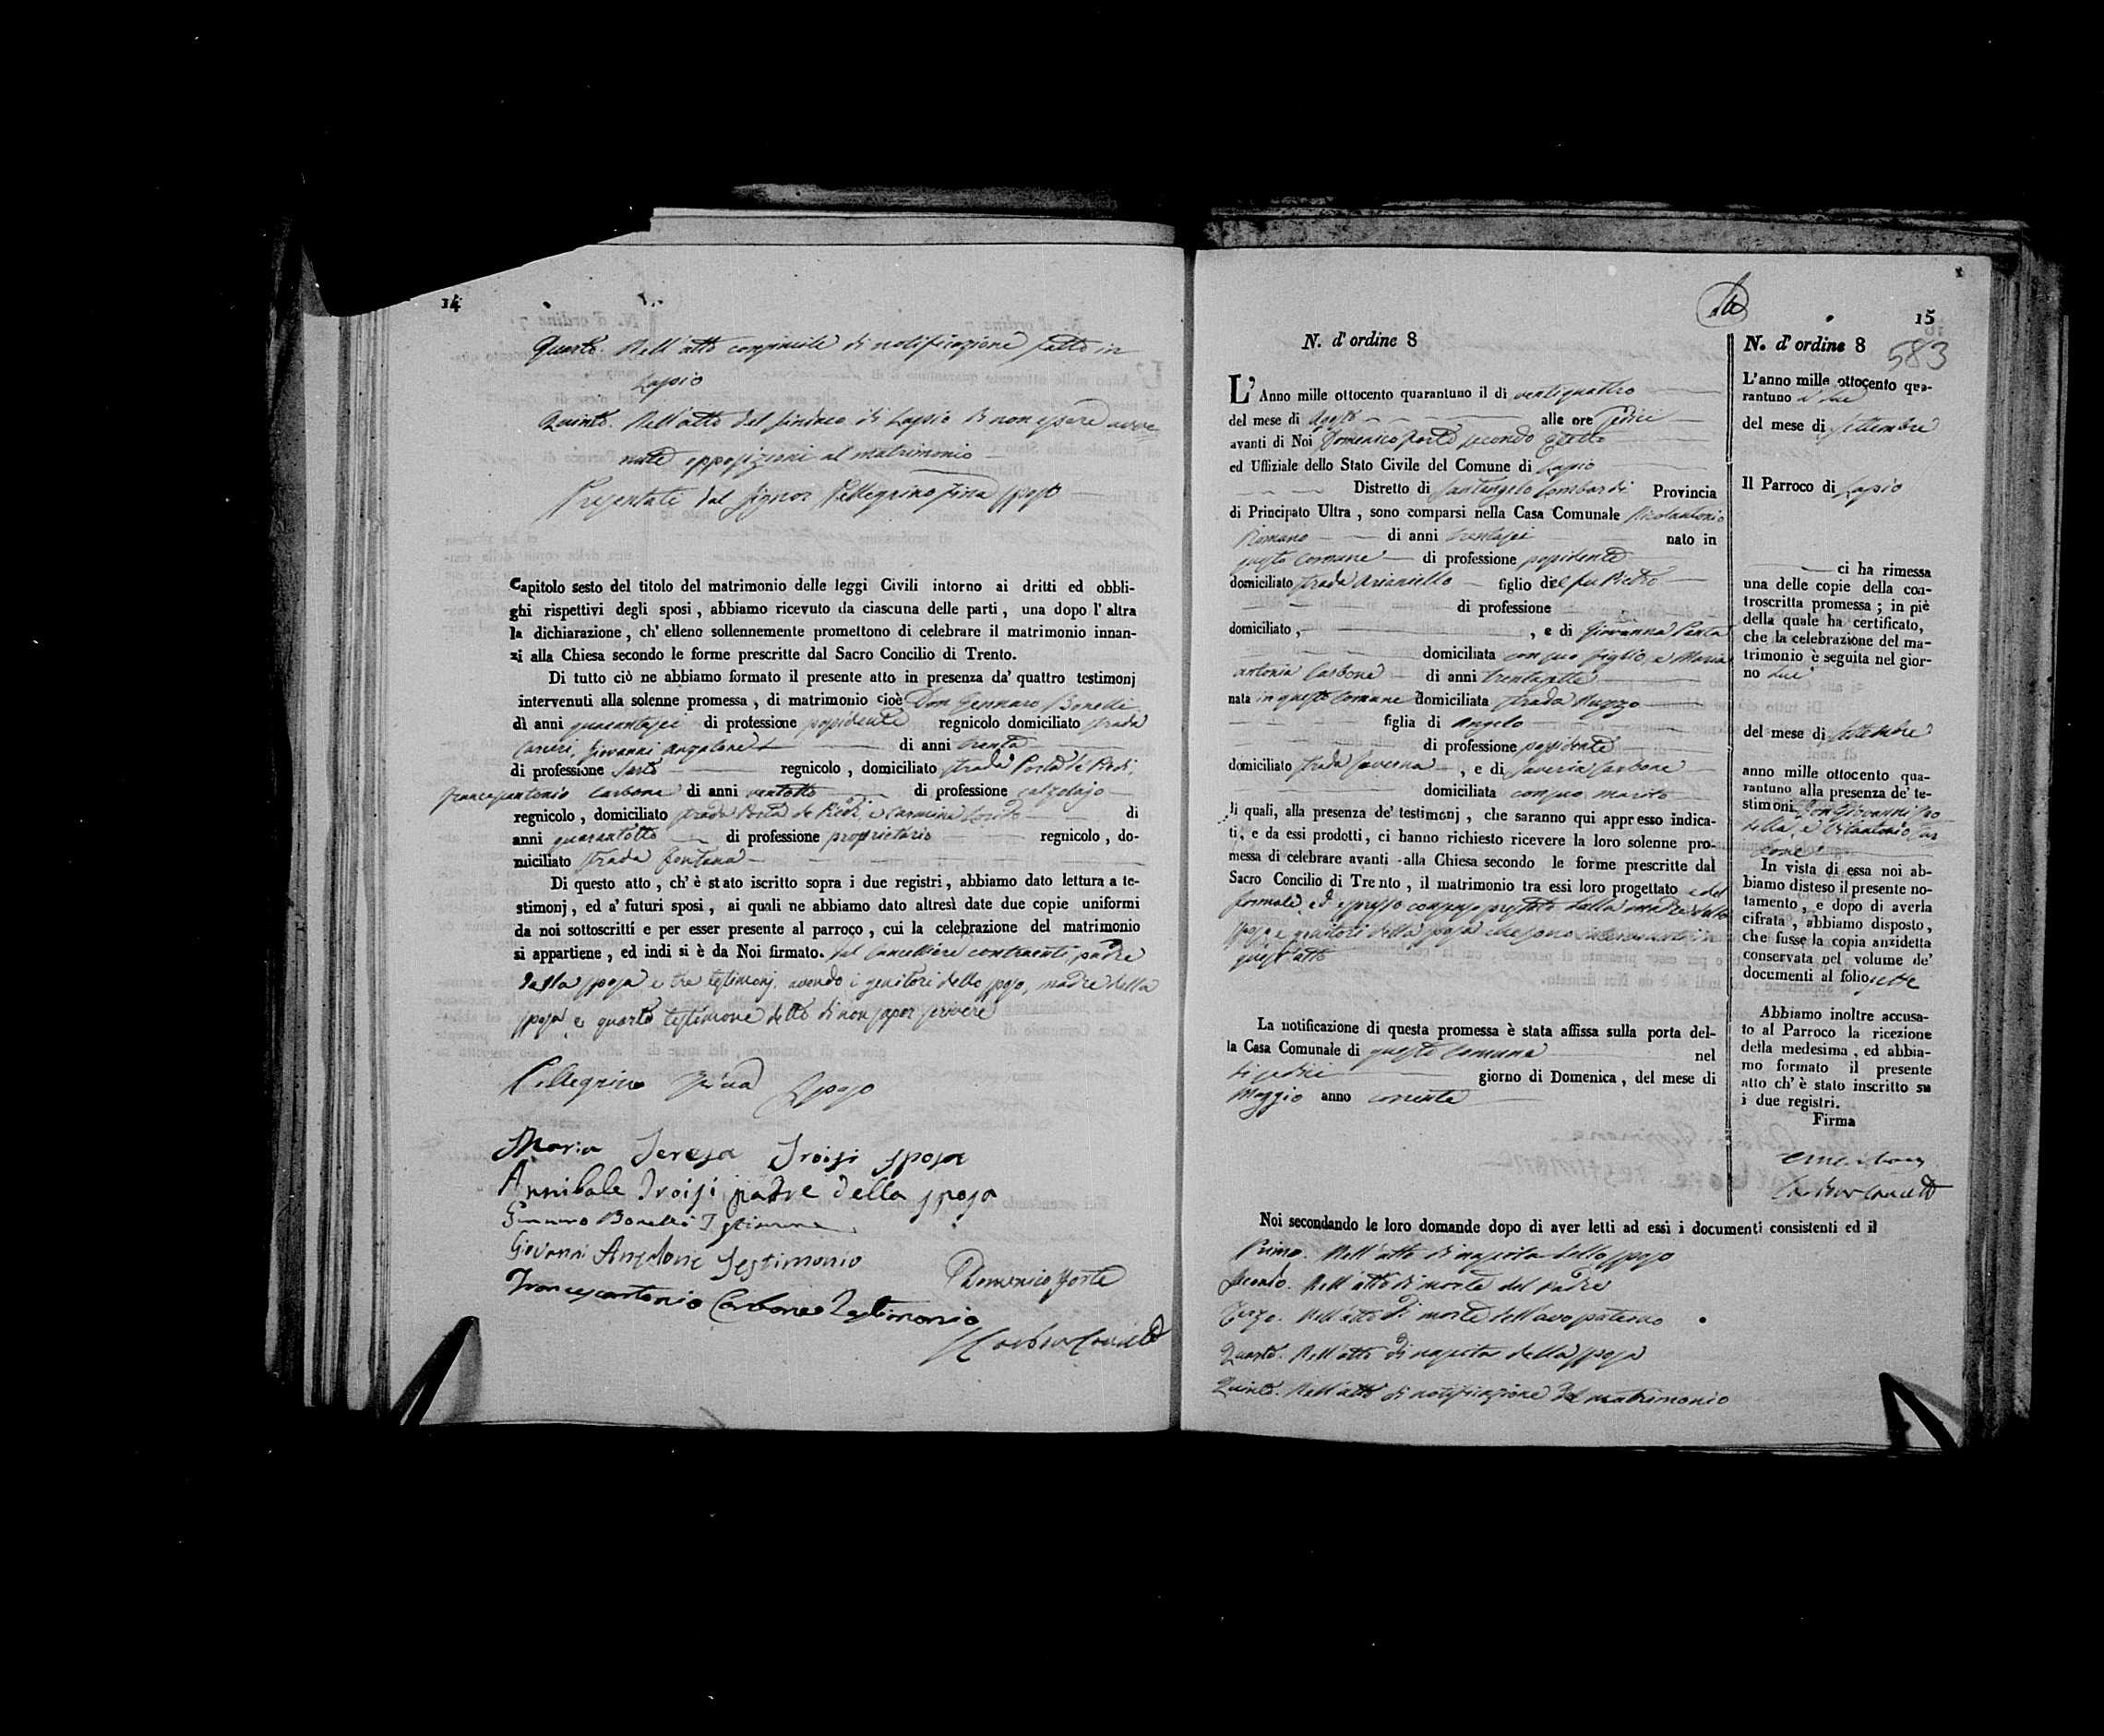 14
Quarto. Nell'atto di notificazione fatto in
Lapio
Quinto. Nell'atto del Sindaco di Lapio di non essere avve-
nute opposizioni al matrimonio
Presentati dal Signor Pellegrino Fina sposo
Capitolo sesto del titolo del matrimonio delle leggi Civili intorno ai dritti ed obbli-
ghi rispettivi degli sposi, abbiamo ricevuto da ciascuna delle parti, una dopo l'altra
la dichiarazione, ch'elleno sollennemente promettono di celebrare il matrimonio innan-
zi alla Chiesa secondo le forme prescritte dal Sacro Concilio di Trento.
Di tutto ciò ne abbiamo formato il presente atto in presenza da' quattro testimonj
intervenuti alla solenne promessa, di matrimonio cioè Don Gennaro Bonelli
di anni quarantasei di professione possidente regnicolo domiciliato strada
Carieri, Giovanni Angelone di anni trenta
di professione Sarto regnicolo, domiciliato strada Porta de Piedi,
Francescantonio Carbone di anni ventotto di professione calzolajo
regnicolo, domiciliato strada Porta de Piedi, e Carmine di
anni quarantotto di professione proprietario regnicolo, do-
miciliato strada fontana
Di questo atto, ch'è stato iscritto sopra i due registri, abbiamo dato lettura a te-
stimonj, ed a' futuri sposi, ai quali ne abbiamo dato altresì date due copie uniformi
da noi sottoscritti e per esser presente al parroco, cui la celebrazione del matrimonio
si appartiene, ed indi si è da Noi firmato. dal Cancelliere contraenti, padre
della sposa e tre testimonj, avendo i genitori dello sposo, madre della
sposa e quarto testimone detto di non saper scrivere
Pellegrino Fina Sposo
Maria Teresa Troisi sposa
Annibale Troisi padre della sposa
Gennaro Bonelli Testimone
Giovanni Angelone Testimonio
Domenico Forte
Francescantonio Carbone Testimonio
15
N. d'ordine 8
L'Anno mille ottocento quarantuno il di ventiquattro
del mese di Agosto alle ore sedici
avanti di Noi Domenico Forte secondo Eletto
ed Uffiziale dello Stato Civile del Comune di Lapio
Distretto di Santangelo Lombardi Provincia
di Principato Ultra, sono comparsi nella Casa Comunale Nicolantonio
Romano di anni trentasei nato in
questo Comune di professione possidente
domiciliato strada Arianiello figlio di del fu Pietro
di professione
domiciliato, , e di Giovanna Penta
domiciliata con suo figlio, e Maria
Antonia Carbone di anni trentasette
nata in questo Comune domiciliata strada Ruzzo
figlia di Angelo
di professione possidente
domiciliato strada Taverna, e di Saveria Carbone
domiciliata con suo marito
li quali, alla presenza de' testimonj, che saranno qui appresso indica-
ti, e da essi prodotti, ci hanno richiesto ricevere la loro solenne pro-
messa di celebrare avanti alla Chiesa secondo le forme prescritte dal
Sacro Concilio di Trento, il matrimonio tra essi loro progettato e del
formale, ed espresso consenso prestato dalla madre dello
sposo e genitori della sposa che sono intervenuti in
quest'atto
La notificazione di questa promessa è stata affissa sulla porta del-
la Casa Comunale di questo Comune nel
di sedici giorno di Domenica, del mese di
Maggio anno corrente
N. d'ordine 8
583
L'anno mille ottocento qua-
rantuno il due
del mese di Settembre
Il Parroco di Lapio
ci ha rimessa
una delle copie della con-
troscritta promessa; in piè
della quale ha certificato,
che la celebrazione del ma-
trimonio è seguita nel gior-
no due
del mese di Settembre
anno mille ottocento qua-
rantuno alla presenza de' te-
stimonj Don Giovanni
e Vitantonio Car-
bone
In vista di essa noi ab-
biamo disteso il presente no-
tamento, e dopo di averla
cifrata, abbiamo disposto,
che fusse la copia anzidetta
conservata nel volume de'
documenti al folio sette
Abbiamo inoltre accusa-
to al Parroco la ricezione
della medesima, ed abbia-
mo formato il presente
atto ch'è stato inscritto su
i due registri.
Firma
Noi secondando le loro domande dopo di aver letti ad essi i documenti consistenti ed il
Primo. Nell'atto di nascita dello sposo
Secondo. Nell'atto di morte del padre
Terzo. Nell'atto di morte dell'avo paterno
Quarto. Nell'atto di nascita della sposa
Quinto. Nell'atto di notificazione del matrimonio